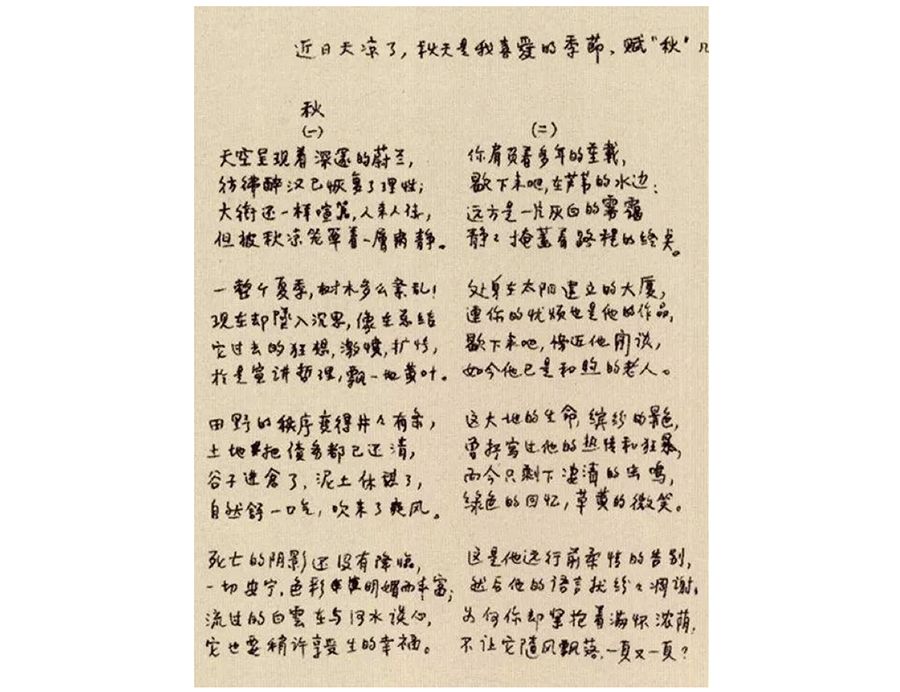 近日天凉了，秋天是我喜爱的季節、赋“秋”几
秋
(一)
天空呈现着深邃的蔚兰，
彷彿醉汉已恢复了理性；
大街还一样喧嚣，人来人往，
但被秋凉笼罩着一層肅静。
一整个夏季，树木多么紊乱！
现在却墜入沉思，像在总结
它过去的狂想，激愤，扩张，
於是宣讲哲理，飄一地黄叶。
田野的秩序变得井々有条，
土地把债务都已还清，
谷子进倉了，泥土休憩了，
自然舒一口气，吹来了爽风。
死亡的阴影还没有降临，
一切安宁，色彩明媚而丰富；
流过的白雲在与河水谈心，
它也要稍许享受生的幸福。
(二)
你肩负着多年的重载，
歇下来吧，在芦苇的水边：
远方是一片灰白的雾靄
静々掩蓋着路程的终点。
处身在太阳建立的大厦，
連你的忧煩也是他的作品，
歇下来吧，傍近他闲谈，
如今他已是和煦的老人。
这大地的生命，缤纷的景色，
曾抒写过他的热情和狂暴，
而今只剩下凄清的虫鳴，
绿色的回忆，草黄的微笑。
这是他远行前柔情的告别，
然后他的语言就纷々凋谢；
为何你却紧抱着满怀浓荫，
不让它随风飘落，一頁又一頁？